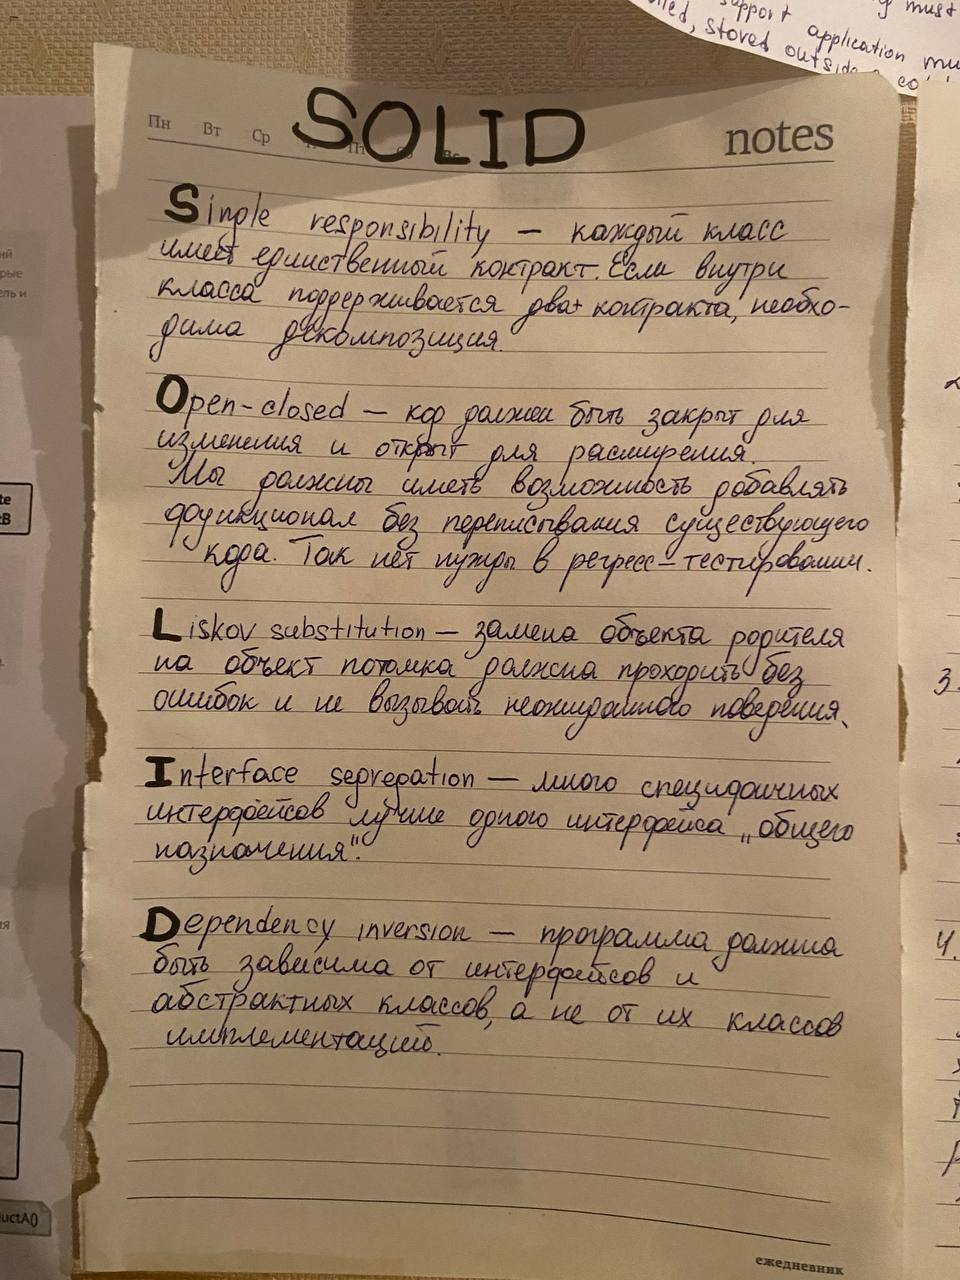 support
application mu
stored outside
Пн Вт Ср
SOLID
notes
Single responsibility — каждый класс
имеет единственный контракт. Если внутри
класса поддерживается два+ контракта, необхо-
дима декомпозиция.
Open-closed — код должен быть закрыт для
изменения и открыт для расширения.
Мы должны иметь возможность добавлять
функционал без переписывания существующего
кода. Так нет нужды в регресс-тестировании.
Liskov substitution — замена объекта родителя
на объект потомка должна проходить без
ошибок и не вызывать неожиданного поведения.
Interface segregation — много специфичных
интерфейсов лучше одного интерфейса „общего
назначения".
Dependency inversion — программа должна
быть зависима от интерфейсов и
абстрактных классов, а не от их классов
имплементаций.
ежедневник
3.
4.
uctA()